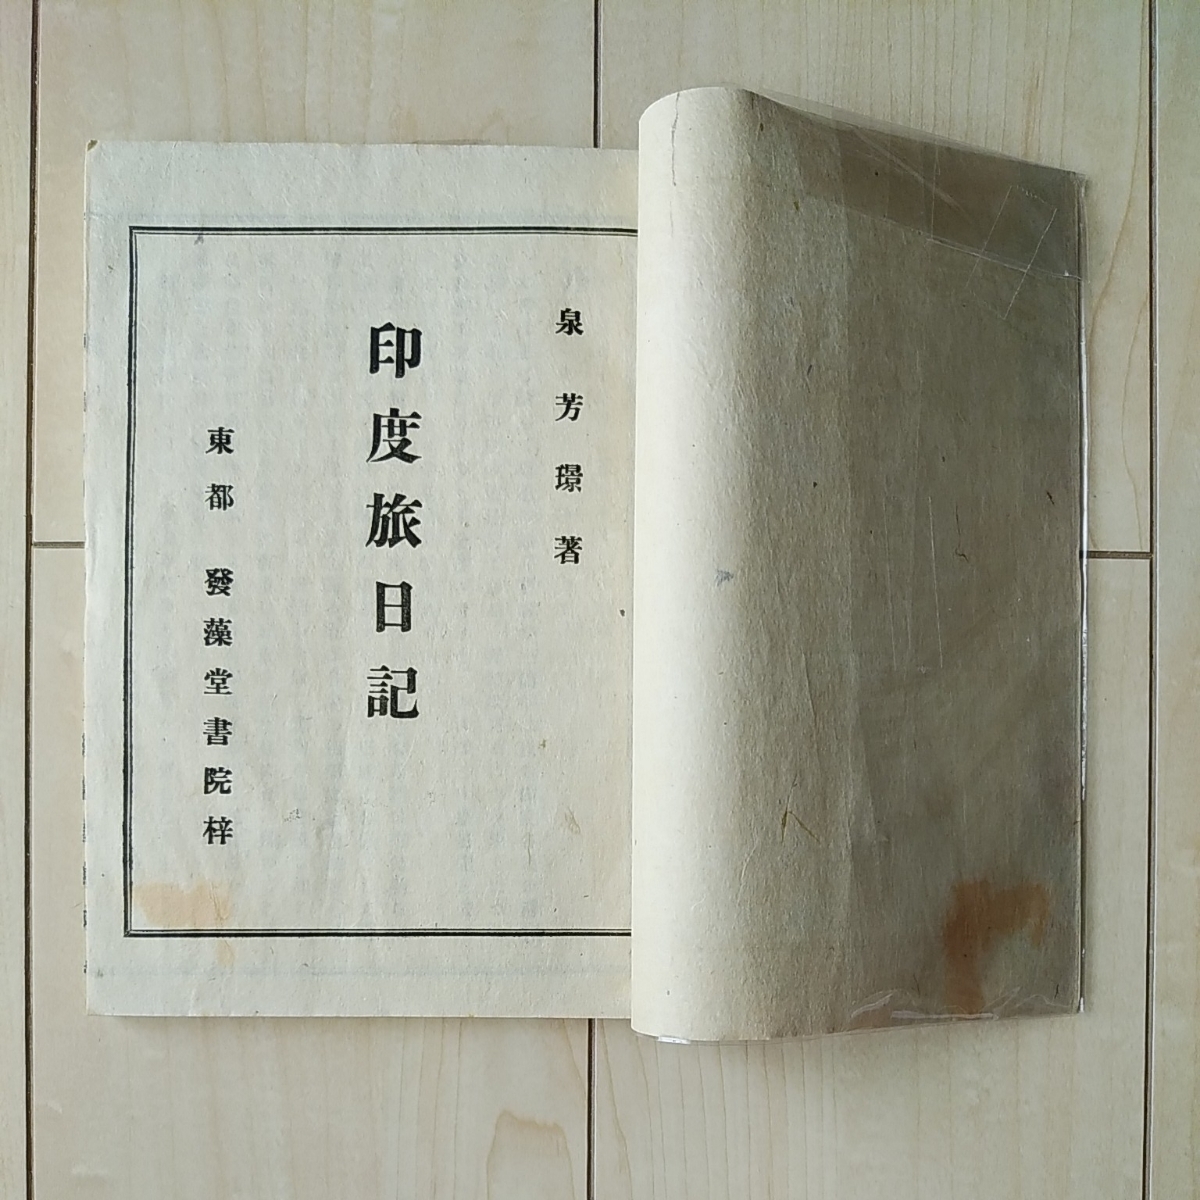 泉芳璟著
印度旅日記
東都 發藻堂書院梓